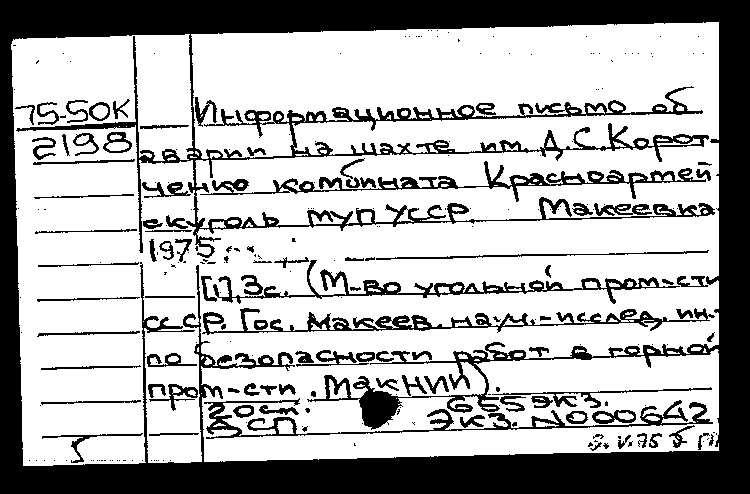 75-50К Информационное письмо об
2198 аварии на шахте им. Д.С.Корот-
ченко комбината Красноармей-
скуголь МУП УССР. Макеевка
1975.
[1], 3с. (М-во угольной пром-сти
СССР. Гос. Макеев. науч.-исслед. ин-т
по безопасности работ в горной
пром-сти. МакНИИ).
20 см. 655 экз.
ДСП. Экз. N000642
5